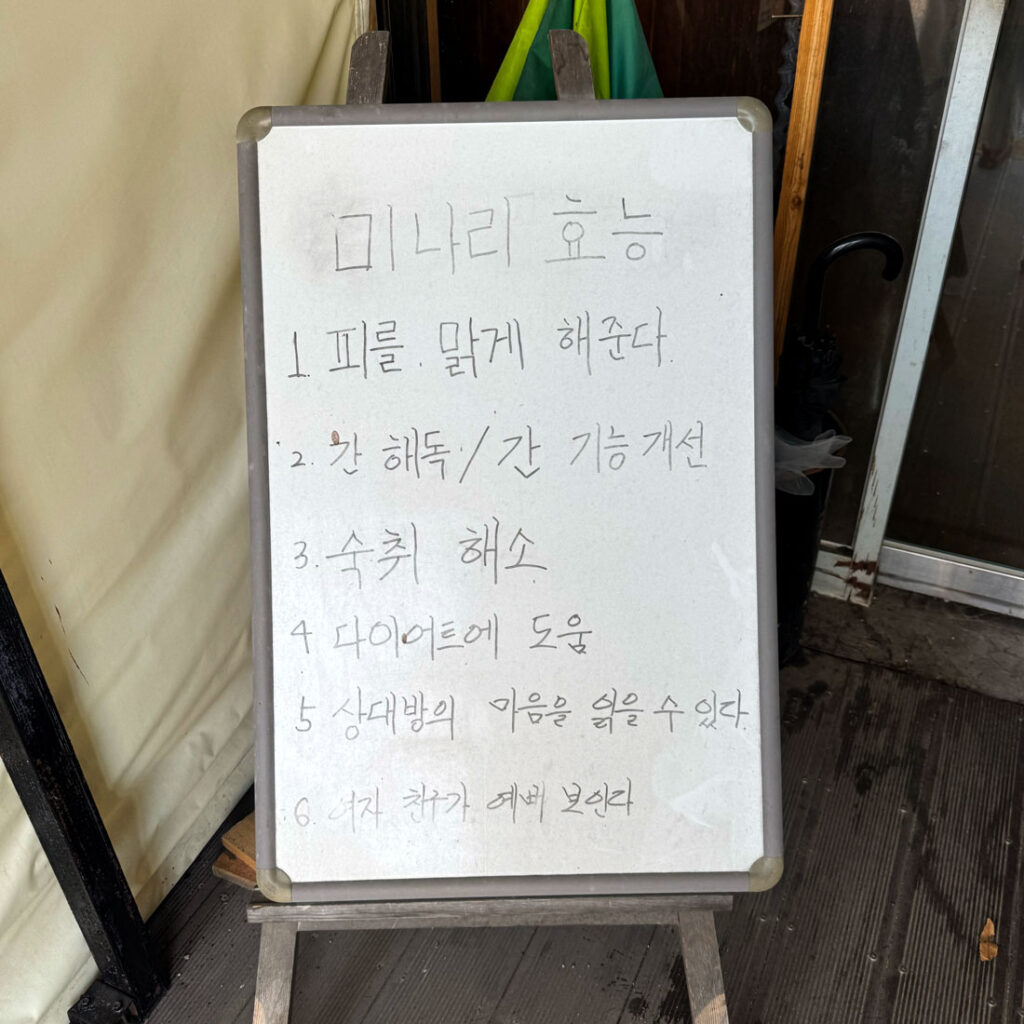 미나리 효능
1. 피를 맑게 해준다.
2. 간 해독 / 간 기능개선
3. 숙취 해소
4 다이어트에 도움
5 상대방의 마음을 읽을 수 있다.
6. 여자 친구가 예뻐 보인다